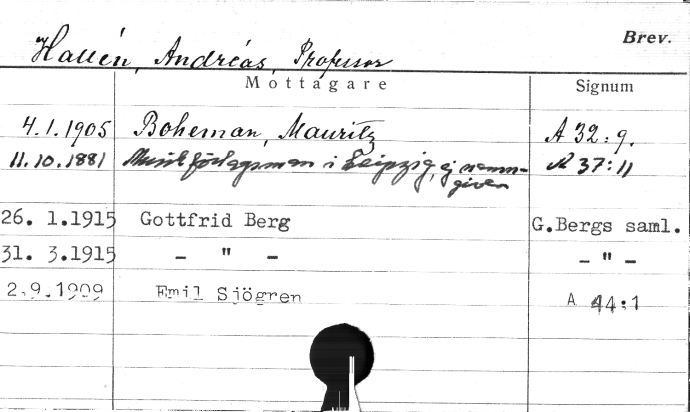 Brev.
Hallén, Andréas, Professor
Mottagare Signum
4.1.1905 Boheman, Mauritz A 32:9.
11.10.1881 Musikförlagsman i Leipzig, ej namn- A 37:11
given
26. 1.1915 Gottfrid Berg G.Bergs saml.
31. 3.1915 – " – – " –
2.9.1909 Emil Sjögren A 44:1